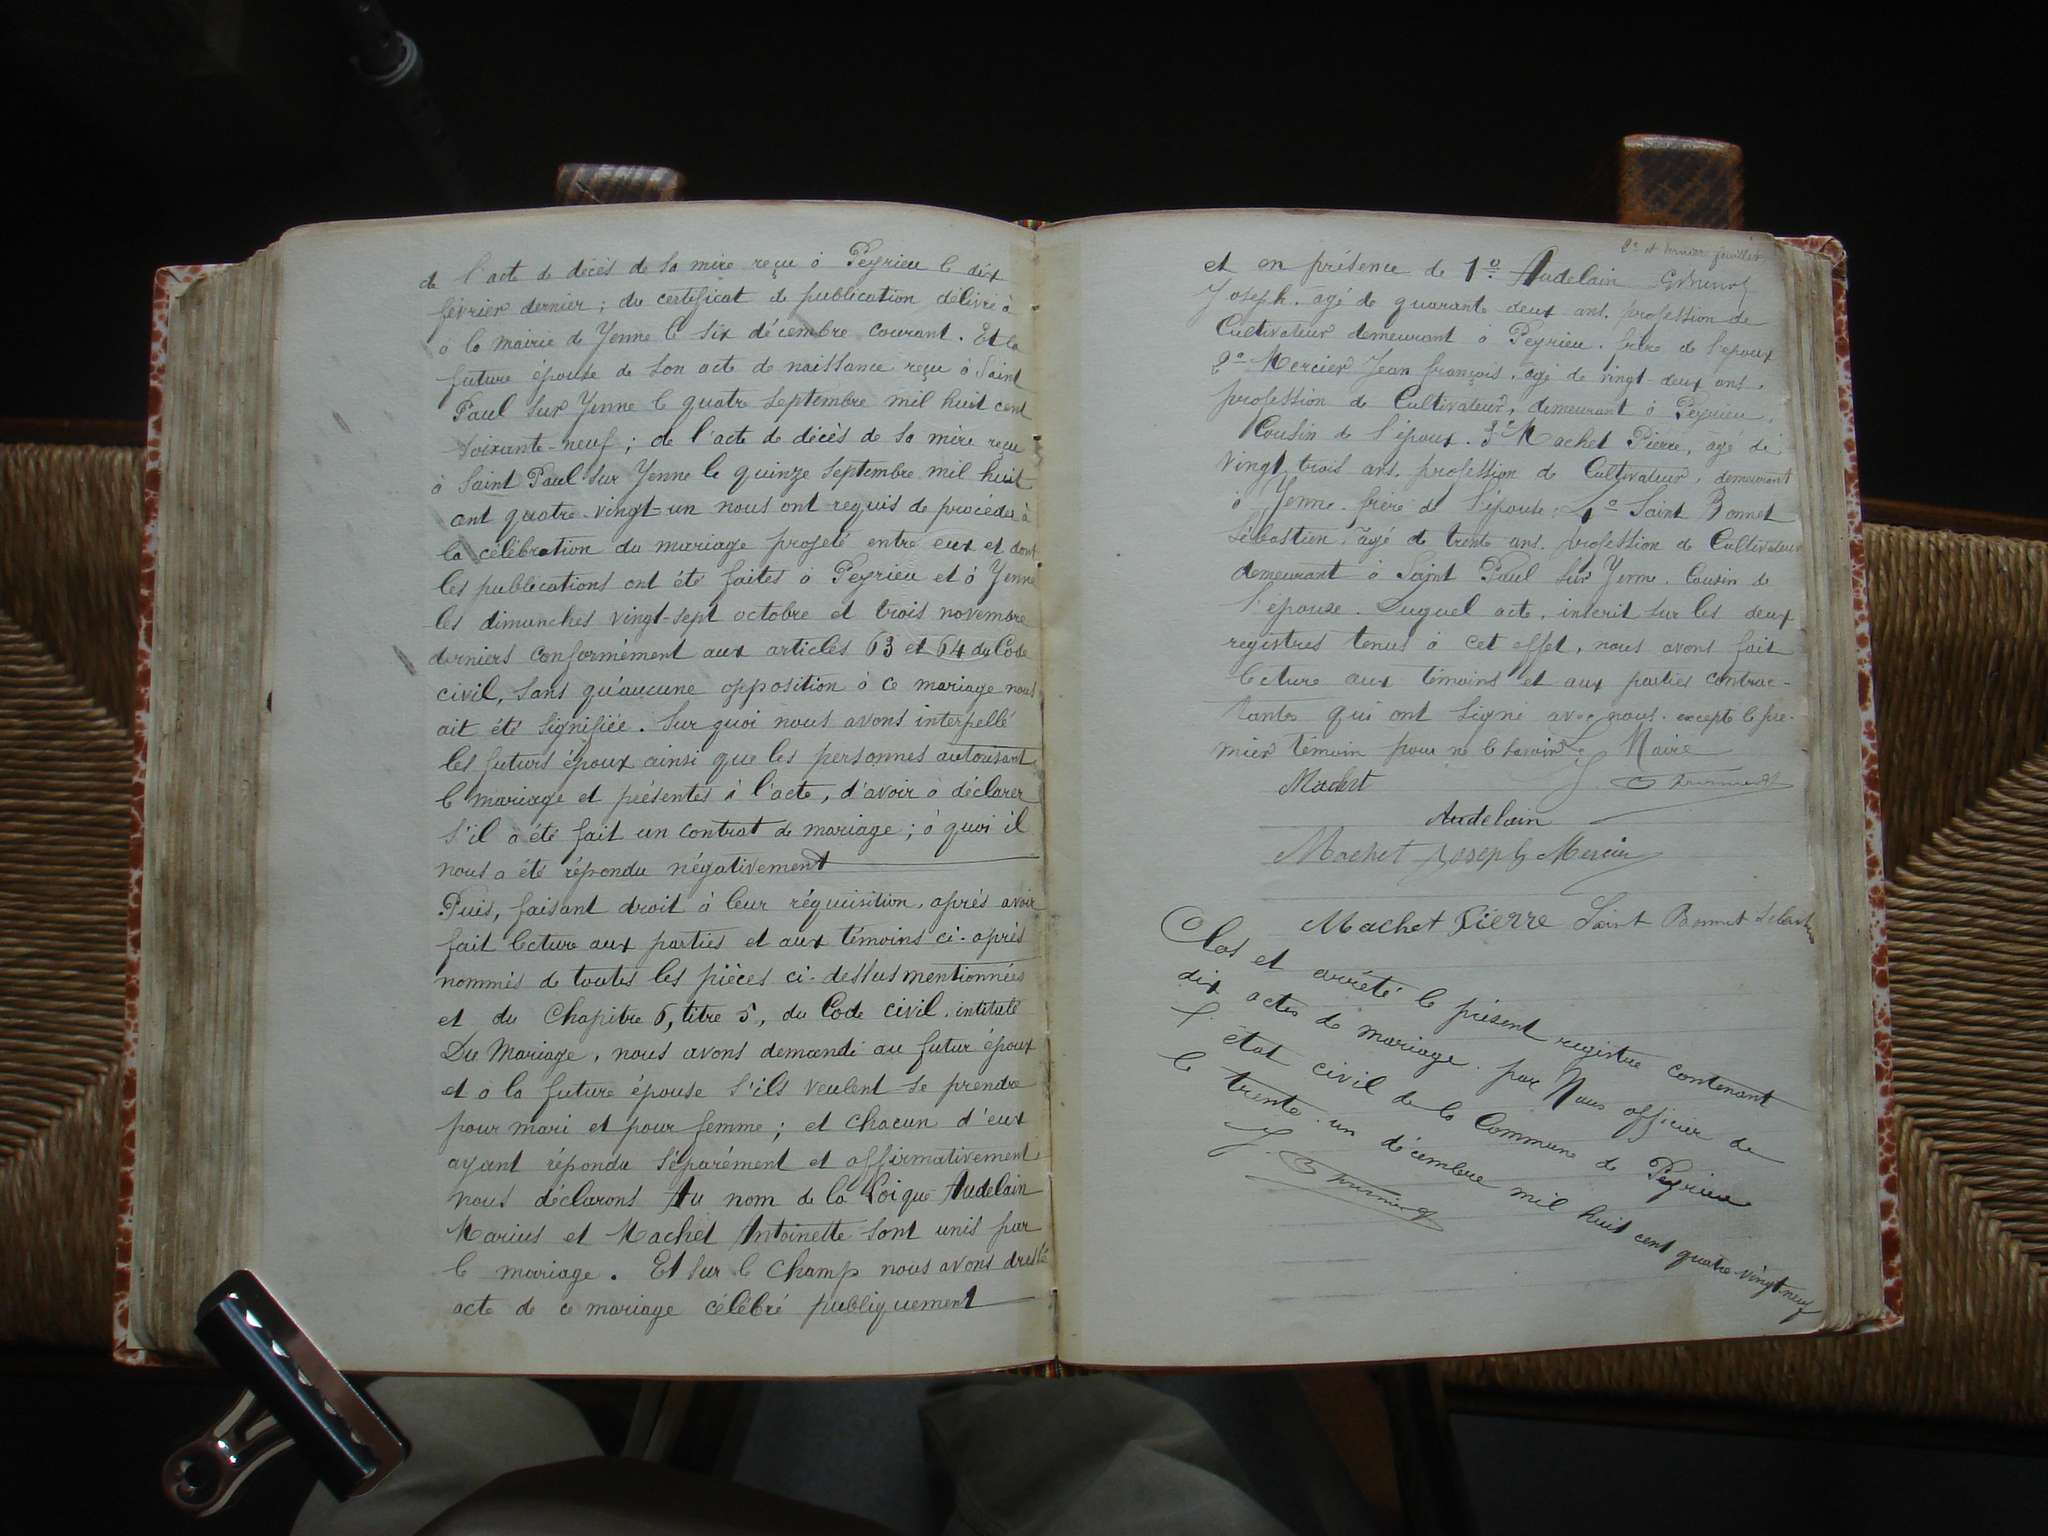 de l'acte de décès de sa mère reçu à Peyrieu le dix
février dernier ; du certificat de publication délivré à
à la mairie de Yenne le six décembre courant. Et la
future épouse de son acte de naissance reçu à Saint
Paul sur Yenne le quatre septembre mil huit cent
soixante-neuf ; de l'acte de décès de sa mère reçu
à Saint Paul sur Yenne le quinze septembre mil huit
cent quatre-vingt-un nous ont requis de procéder à
la célébration du mariage projeté entre eux et dont
les publications ont été faites à Peyrieu et à Yenne
les dimanches vingt-sept octobre et trois novembre
derniers conformément aux articles 63 et 64 du Code
civil, sans qu'aucune opposition à ce mariage nous
ait été signifiée. Sur quoi nous avons interpellé
les futurs époux ainsi que les personnes autorisant
le mariage et présentes à l'acte, d'avoir à déclarer
s'il a été fait un contrat de mariage ; à quoi il
nous a été répondu négativement
Puis, faisant droit à leur réquisition, après avoir
fait lecture aux parties et aux témoins ci-après
nommés de toutes les pièces ci-dessus mentionnées
et du Chapitre 6, titre 5, du Code civil, intitulé
Du Mariage, nous avons demandé au futur époux
et à la future épouse s'ils veulent se prendre
pour mari et pour femme ; et chacun d'eux
ayant répondu séparément et affirmativement
nous déclarons Au nom de la Loi que Audelain
Marius et Machet Antoinette sont unis par
le mariage. Et sur le champ nous avons dressé
acte de ce mariage célébré publiquement
2e et dernier feuillet
et en présence de 1º Audelain
Joseph. âgé de quarante deux ans. profession de
Cultivateur demeurant à Peyrieu. frère de l'époux
2º Mercier Jean françois. âgé de vingt-deux ans.
profession de Cultivateur, demeurant à Peyrieu,
Cousin de l'époux. 3º Machet Pierre, âgé de
vingt trois ans. profession de Cultivateur, demeurant
à Yenne. frère de l'épouse. 4º Saint Bonnet
Sébastien. âgé de trente ans. profession de Cultivateur
demeurant à Saint Paul sur Yenne. Cousin de
l'épouse. Duquel acte, inscrit sur les deux
registres tenus à cet effet, nous avons fait
lecture aux témoins et aux parties contrac-
tantes qui ont signé avec nous. excepté le pre-
mier témoin pour ne le savoir Le Maire
Machet
Audelain
Machet Joseph Mercier
Machet Pierre Saint Bonnet
Clos et arrêté le présent registre contenant
dix actes de mariage. par Nous officier de
l'état civil de la Commune de Peyrieu
le trente-un décembre mil huit cent quatre-vingt-neuf